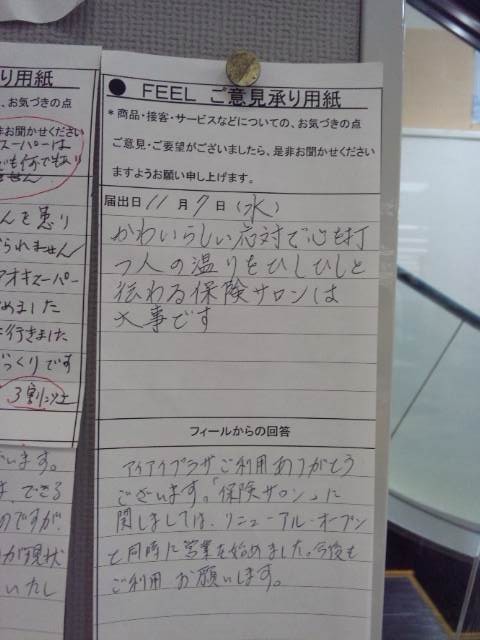 り用紙
、お気づきの点
非お聞かせください
スーパーは
んを思り
られません
アオキスーパー
めました
行きました
づくりです
3割以上
います。
は、できる
のですが
が現状
いたし
● FEEL ご意見承り用紙
* 商品・接客・サービスなどについての、お気づきの点
ご意見・ご要望がございましたら、是非お聞かせください
ますようお願い申し上げます。
届出日 11 月 7 日 (水)
かわいらしい応対で心を打
つ人の温りをひしひしと
伝わる保険サロンは
大事です
フィールからの回答
アイアイプラザご利用ありがとう
ございます。「保険サロン」に
関しましては、リニューアル・オープン
と同時に営業を始めました。今後も
ご利用 お願いします。